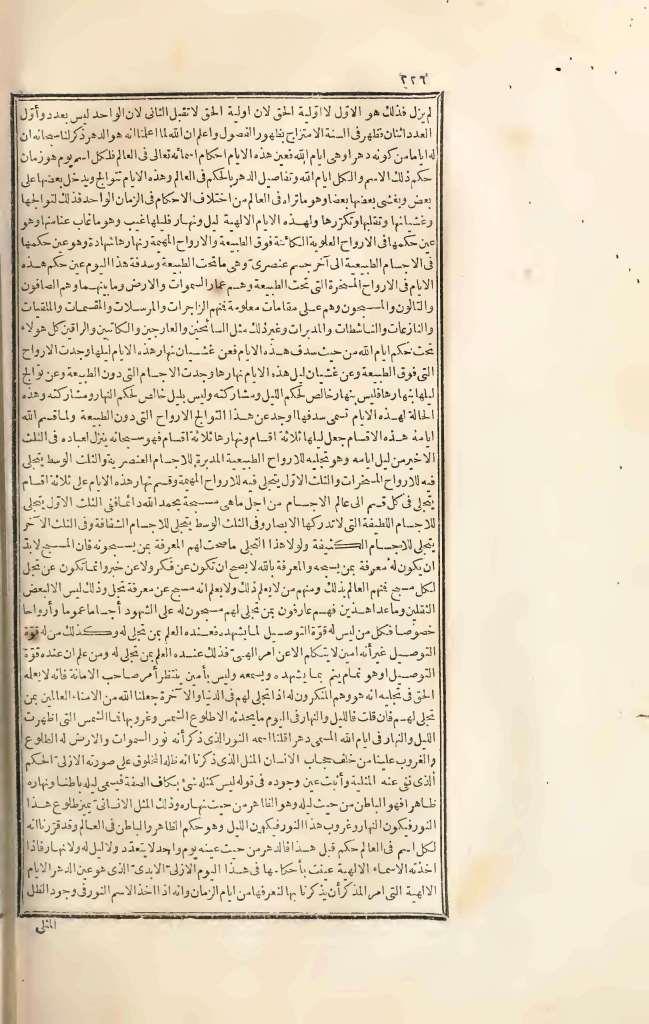 ٢٢٦
لم يزل فذلك هو الاول لا اولية الحق لان اولية الحق لا تقبل الثاني لان الواحد ليس بعدد واول
العدد اثنان وتظهر فى السنة الامتزاج بظهور الفصول واعلم ان الله لما اعلمنا انه هو الدهر ذكر لنا سبحانه ان
له اياما من كونه دهرا وهى ايام الله فعين هذه الايام احكام اسمائه تعالى فى العالم فلكل اسم يوم هو زمان
حكم ذلك الاسم والكل ايام الله وتفاصيل الدهر بالحكم فى العالم وهذه الايام تتوالج ويدخل بعضها على
بعض ويغشى بعضها بعضا وهو ما تراه فى العالم من اختلاف الاحكام فى الزمان الواحد فذلك لتوالجها
وغشيانها وتقلبها وتكررها ولهذه الايام الالهية ليل ونهار فليلها غيب وهو ما غاب عنا منها وهو
عين حكمها فى الارواح العلوية الكائنة فوق الطبيعة والارواح المهيمة ونهارها شهادة وهو عين حكمها
فى الاجسام الطبيعية الى آخر جسم عنصرى وهى ما تحت الطبيعة وسدفة هذا اليوم عين حكم هذه
الايام فى الارواح المسخرة التى تحت الطبيعة وهم عمار السموات والارض وما بينهما وهم الصافون
والتالون والمسبحون وهم على مقامات معلومة فمنهم الزاجرات والمرسلات والمقسمات والملقيات
والنازعات والناشطات والمدبرات وغير ذلك مثل السائحين والعارجين والكاتبين والراقبين كل هؤلاء
تحت حكم ايام الله من حيث سدف هذه الايام فعن غشيان نهار هذه الايام ليلها وجدت الارواح
التى فوق الطبيعة وعن غشيان ليل هذه الايام نهارها وجدت الاجسام التى دون الطبيعة وعن توالج
ليلها بنهارها فليس بنهار خالص لحكم الليل ومشاركته وليس بليل خالص لحكم النهار ومشاركته وهذه
الحالة لهذه الايام تسمى سدفها اوجد عن هذا التوالج الارواح التى دون الطبيعة ولما قسم الله
ايامه هذه الاقسام جعل ليلها ثلاثة اقسام ونهارها ثلاثة اقسام فهو سبحانه ينزل لعباده فى الثلث
الاخير من ليل ايامه وهو تجليه للارواح الطبيعية المدبرة للاجسام العنصرية والثلث الوسط يتجلى
فيه للارواح المسخرات والثلث الاول يتجلى فيه للارواح المهيمة وقسم نهار هذه الايام على ثلاثة اقسام
يتجلى فى كل قسم الى عالم الاجسام من اجل ما هى مسبحة بحمد الله دائما ففى الثلث الاول يتجلى
للاجسام اللطيفة التى لا تدركها الابصار وفى الثلث الوسط يتجلى للاجسام الشفافة وفى الثلث الآخر
يتجلى للاجسام الكثيفة ولولا هذا التجلى ما صحت لهم المعرفة بمن يسبحونه فان المسبح لابد
ان يكون له معرفة بمن يسبحه والمعرفة بالله لا يصح ان تكون عن فكر ولا عن خبر وانما تكون عن تجل
لكل مسبح فمنهم العالم بذلك ومنهم من لا يعلم ذلك ولا يعلم انه مسبح عن معرفة تجلى وذلك ليس الا لبعض
الثقلين وما عدا هذين فهم عارفون بمن تجلى لهم مسبحون له على الشهود أجساما عموما وأرواحا
خصوصا فكل من ليس له قوة التوصيل لما يشهده فعنده العلم بمن تجلى له وكذلك من له قوة
التوصيل غير أنه امين لا يتكلم الا عن امر الهى فذلك عنده العلم بمن تجلى له ومن علم ان عنده قوة
التوصيل او هو نمام ينم بما يشهده ويسمعه وليس بأمين ينتظر أمر صاحب الامانة فانه لا يعلمه
الحق فى تجليه انه هو وهم المنكرون له اذا تجلى لهم فى الدنيا والآخرة جعلنا الله من الامناء العالمين بمن
تجلى لهم فان قلت فالليل والنهار فى اليوم ما يحدثه الا طلوع الشمس وغروبها فما الشمس التى اظهرت
الليل والنهار فى ايام الله المسمى دهرا قلنا اسمه النور الذى ذكر أنه نور السموات والارض له الطلوع
والغروب علينا من خلف حجاب الانسان المثل الذى ذكرنا انه ظله المخلوق على صورته الازلى الحكم
الذى نفى عنه المثلية وأثبت عين وجوده فى قوله ليس كمثله شئ بكاف الصفة فيسمى ليله باطنا ونهاره
ظاهرا فهو الباطن من حيث ليله وهو الظاهر من حيث نهاره وذلك المثل الانسانى يميز طلوع هذا
النور فيكون النهار وغروب هذا النور فيكون الليل وهو حكم الظاهر والباطن فى العالم وقد قررنا انه
لكل اسم فى العالم حكم قبل هذا فالدهر من حيث عينه يوم واحد لا يتعدد ولا ليل له ولا نهار فاذا
اخذته الاسماء الالهية عينت بأحكامها فى هذا اليوم الازلى الابدى الذى هو عين الدهر الايام
الالهية التى امر المذكر أن يذكرنا بها لنعرفها من ايام الزمان وانه اذا اخذ الاسم النور فى وجود الظل
المثلى